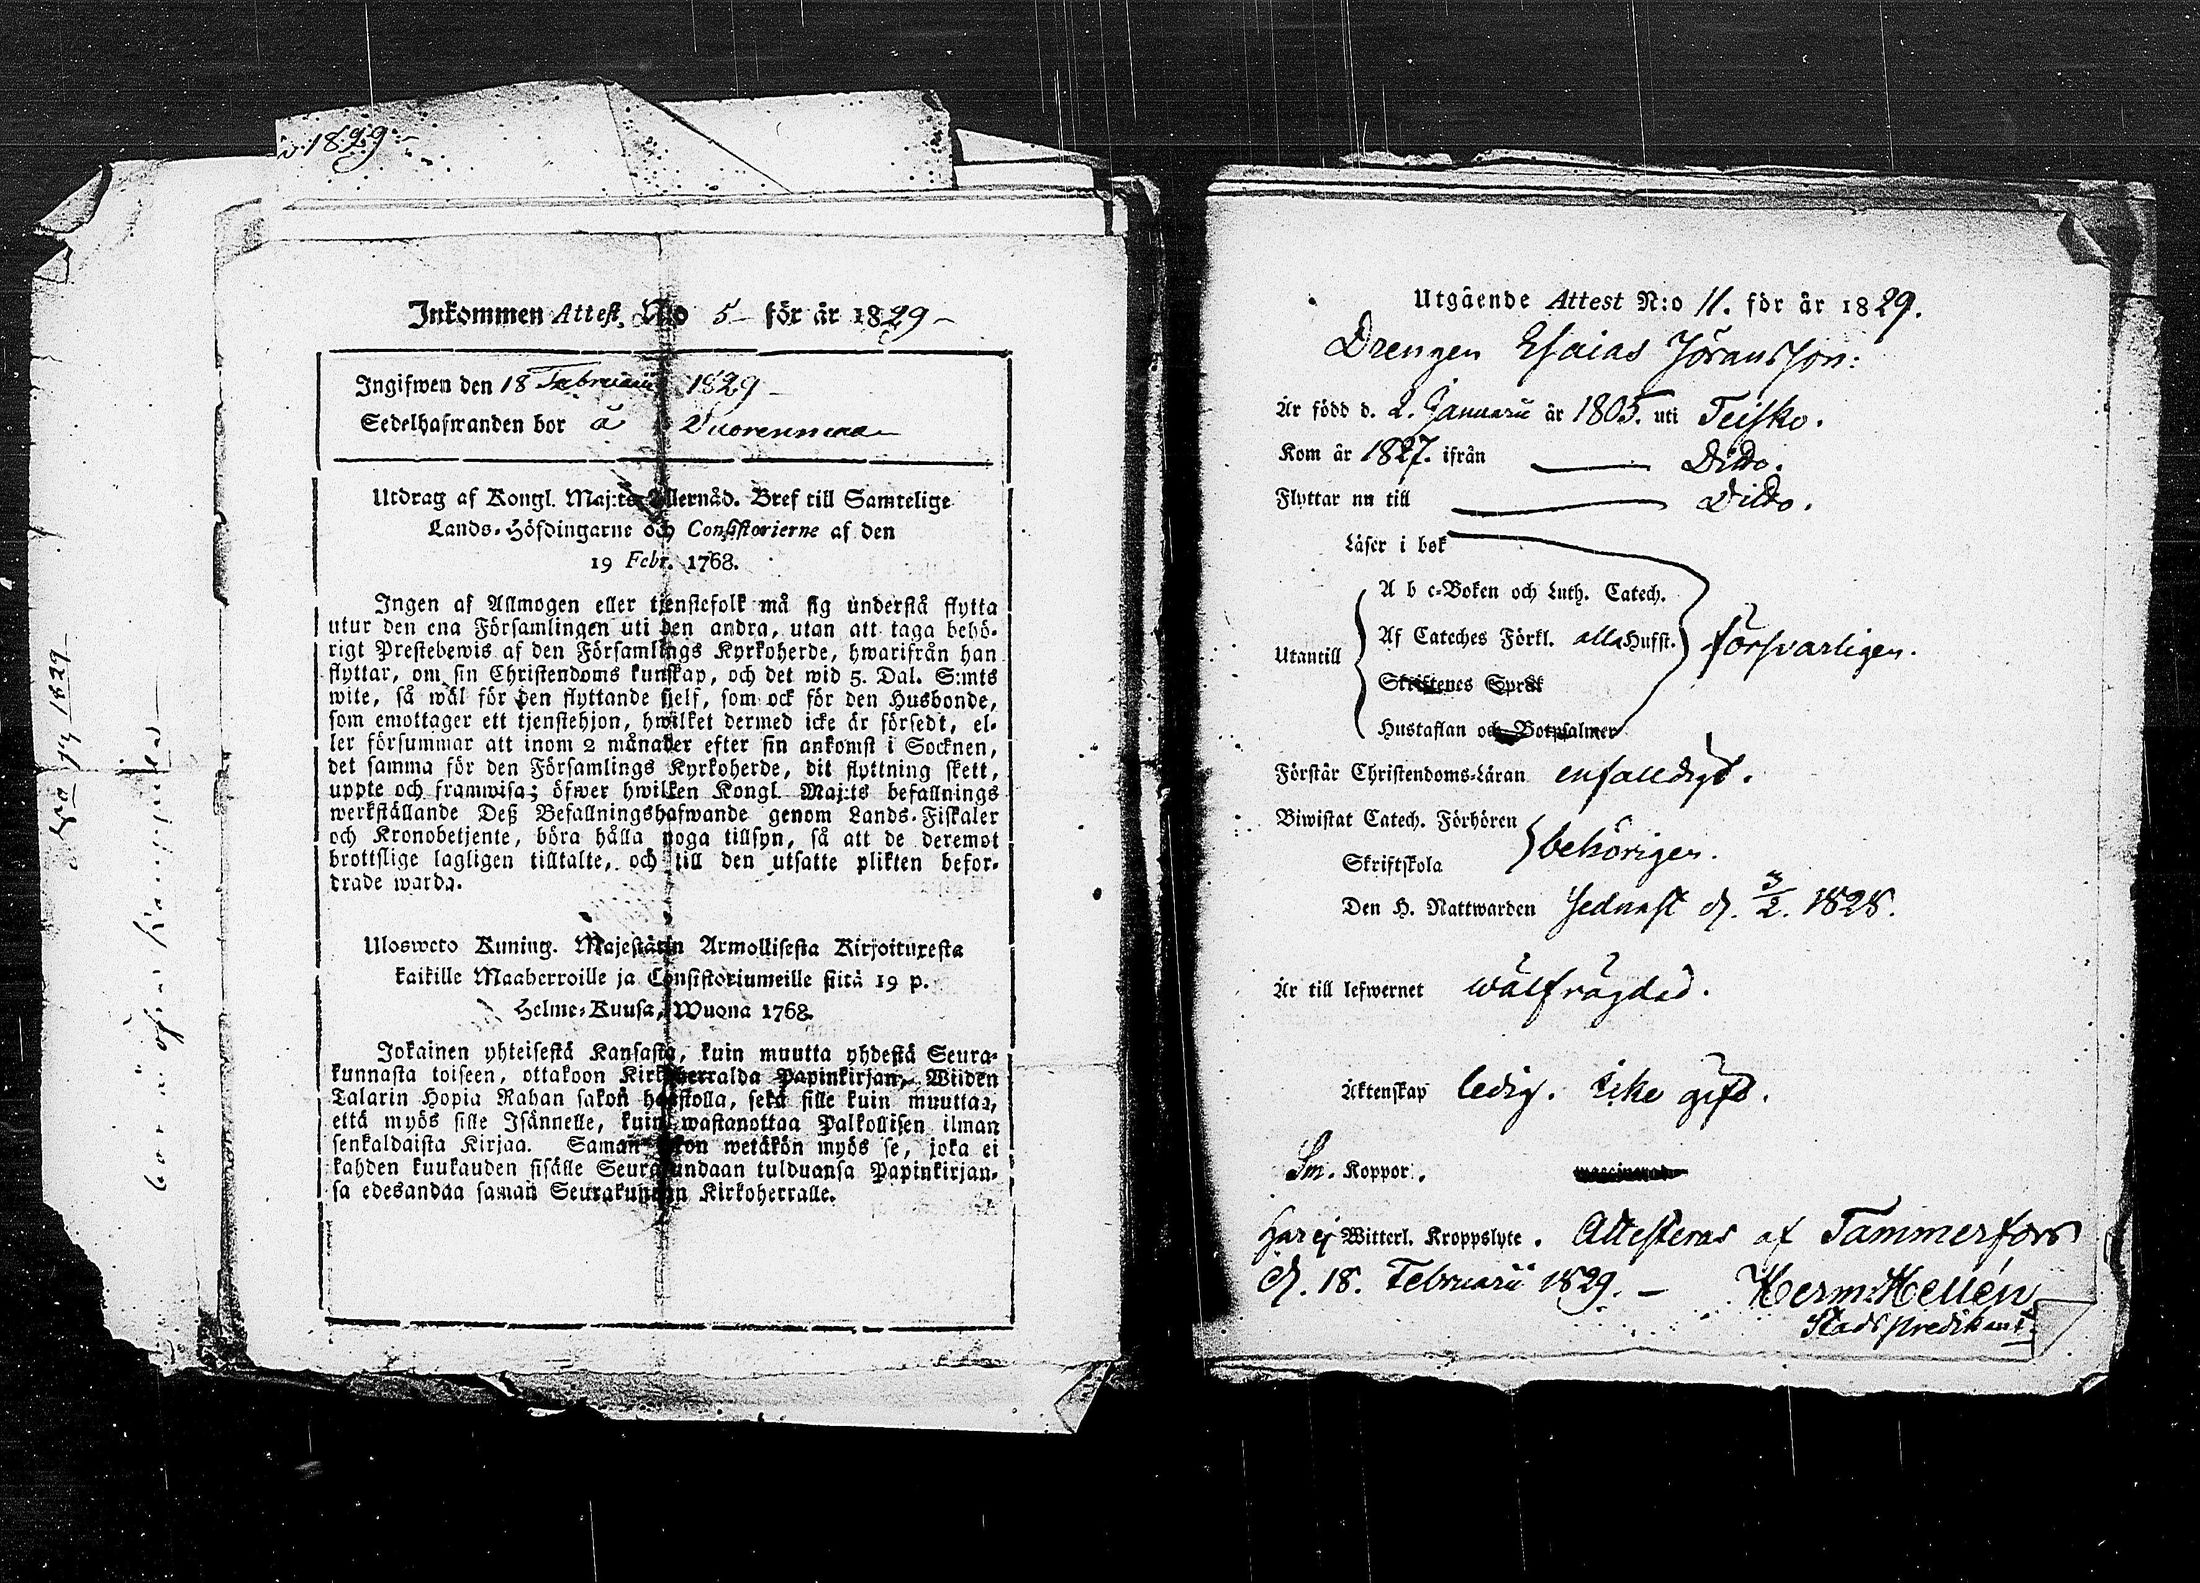 1829
Inkommen Attest. N:o 5 för år 1829
Ingifwen den 18 Februarii 1829
Sedelhafwanden bor å Vuorenmaa
Utdrag af Kongl. Maj:ts Allernåd. Bref till Samtelige
Lands-Höfdingarne och Consistorierne af den
19 Febr. 1768.
Ingen af Allmogen eller tjenstefolk må sig understå flytta
utur den ena Församlingen uti den andra, utan att taga behö-
rigt Prestebewis af den Församlings Kyrkoherde, hwarifrån han
flyttar, om sin Christendoms kunskap, och det wid 5. Dal. S:mts
wite, så wäl för den flyttande sjelf, som ock för den Husbonde,
som emottager ett tjenstehjon, hwilket dermed icke är försedt, el-
ler försummar att inom 2 månader efter sin ankomst i Socknen,
det samma för den Församlings Kyrkoherde, dit flyttning skett,
uppte och framwisa; öfwer hwilken Kongl. Maj:ts befallnings
werkställande Deß Befallningshafwande genom Lands-Fiskaler
och Kronobetjente, böra hålla noga tillsyn, så att de deremot
brottslige lagligen tilltalte, och till den utsatte plikten befor-
drade warda.
Ulosweto Kuning. Majestätin Armollisesta Kirjoituxesta
kaikille Maaherroille ja Consistoriumeille siitä 19 p.
Helme-Kuusa, Wuona 1768.
Jokainen yhteisestä Kansasta, kuin muutta yhdestä Seura-
kunnasta toiseen, ottakoon Kirkkoherralda Papinkirjan, Wiiden
Talarin Hopia Rahan sakon haastolla, sekä sille kuin muuttaa,
että myös sille Isännelle, kuin wastanottaa Palkollisen ilman
senkaldaista Kirjaa. Saman sakon wetäkön myös se, joka ei
kahden kuukauden sisälle Seurakundaan tulduansa Papinkirjan-
sa edesandaa saman Seurakunnan Kirkoherralle.
Utgående Attest N:o 11. för år 1829.
Drengen Esaias Jöransson:
Är född d. 2. Januarii år 1805. uti Teisko.
Kom år 1827. ifrån Ditto.
Flyttar nu till Ditto.
Läser i bok
A b c-Boken och Luth. Catech.
Utantill Af Cateches Förkl. alla Hufst. försvarligen.
Skriftenes Språk
Hustaflan och Botpsalmer
Förstår Christendoms-Läran enfalldigt.
Biwistat Catech. Förhören
behörigen.
Skriftskola
Den H. Nattwarden sednast d. 3/2. 1828.
Är till lefwernet wälfrägdad.
Äktenskap ledig. icke gift.
Sm. Koppor.
Har ej Witterl. Kroppslyte. Attesteras af Tammerfors
d. 18. Februarii 1829. Herm: Hellén
Stadspredikant.